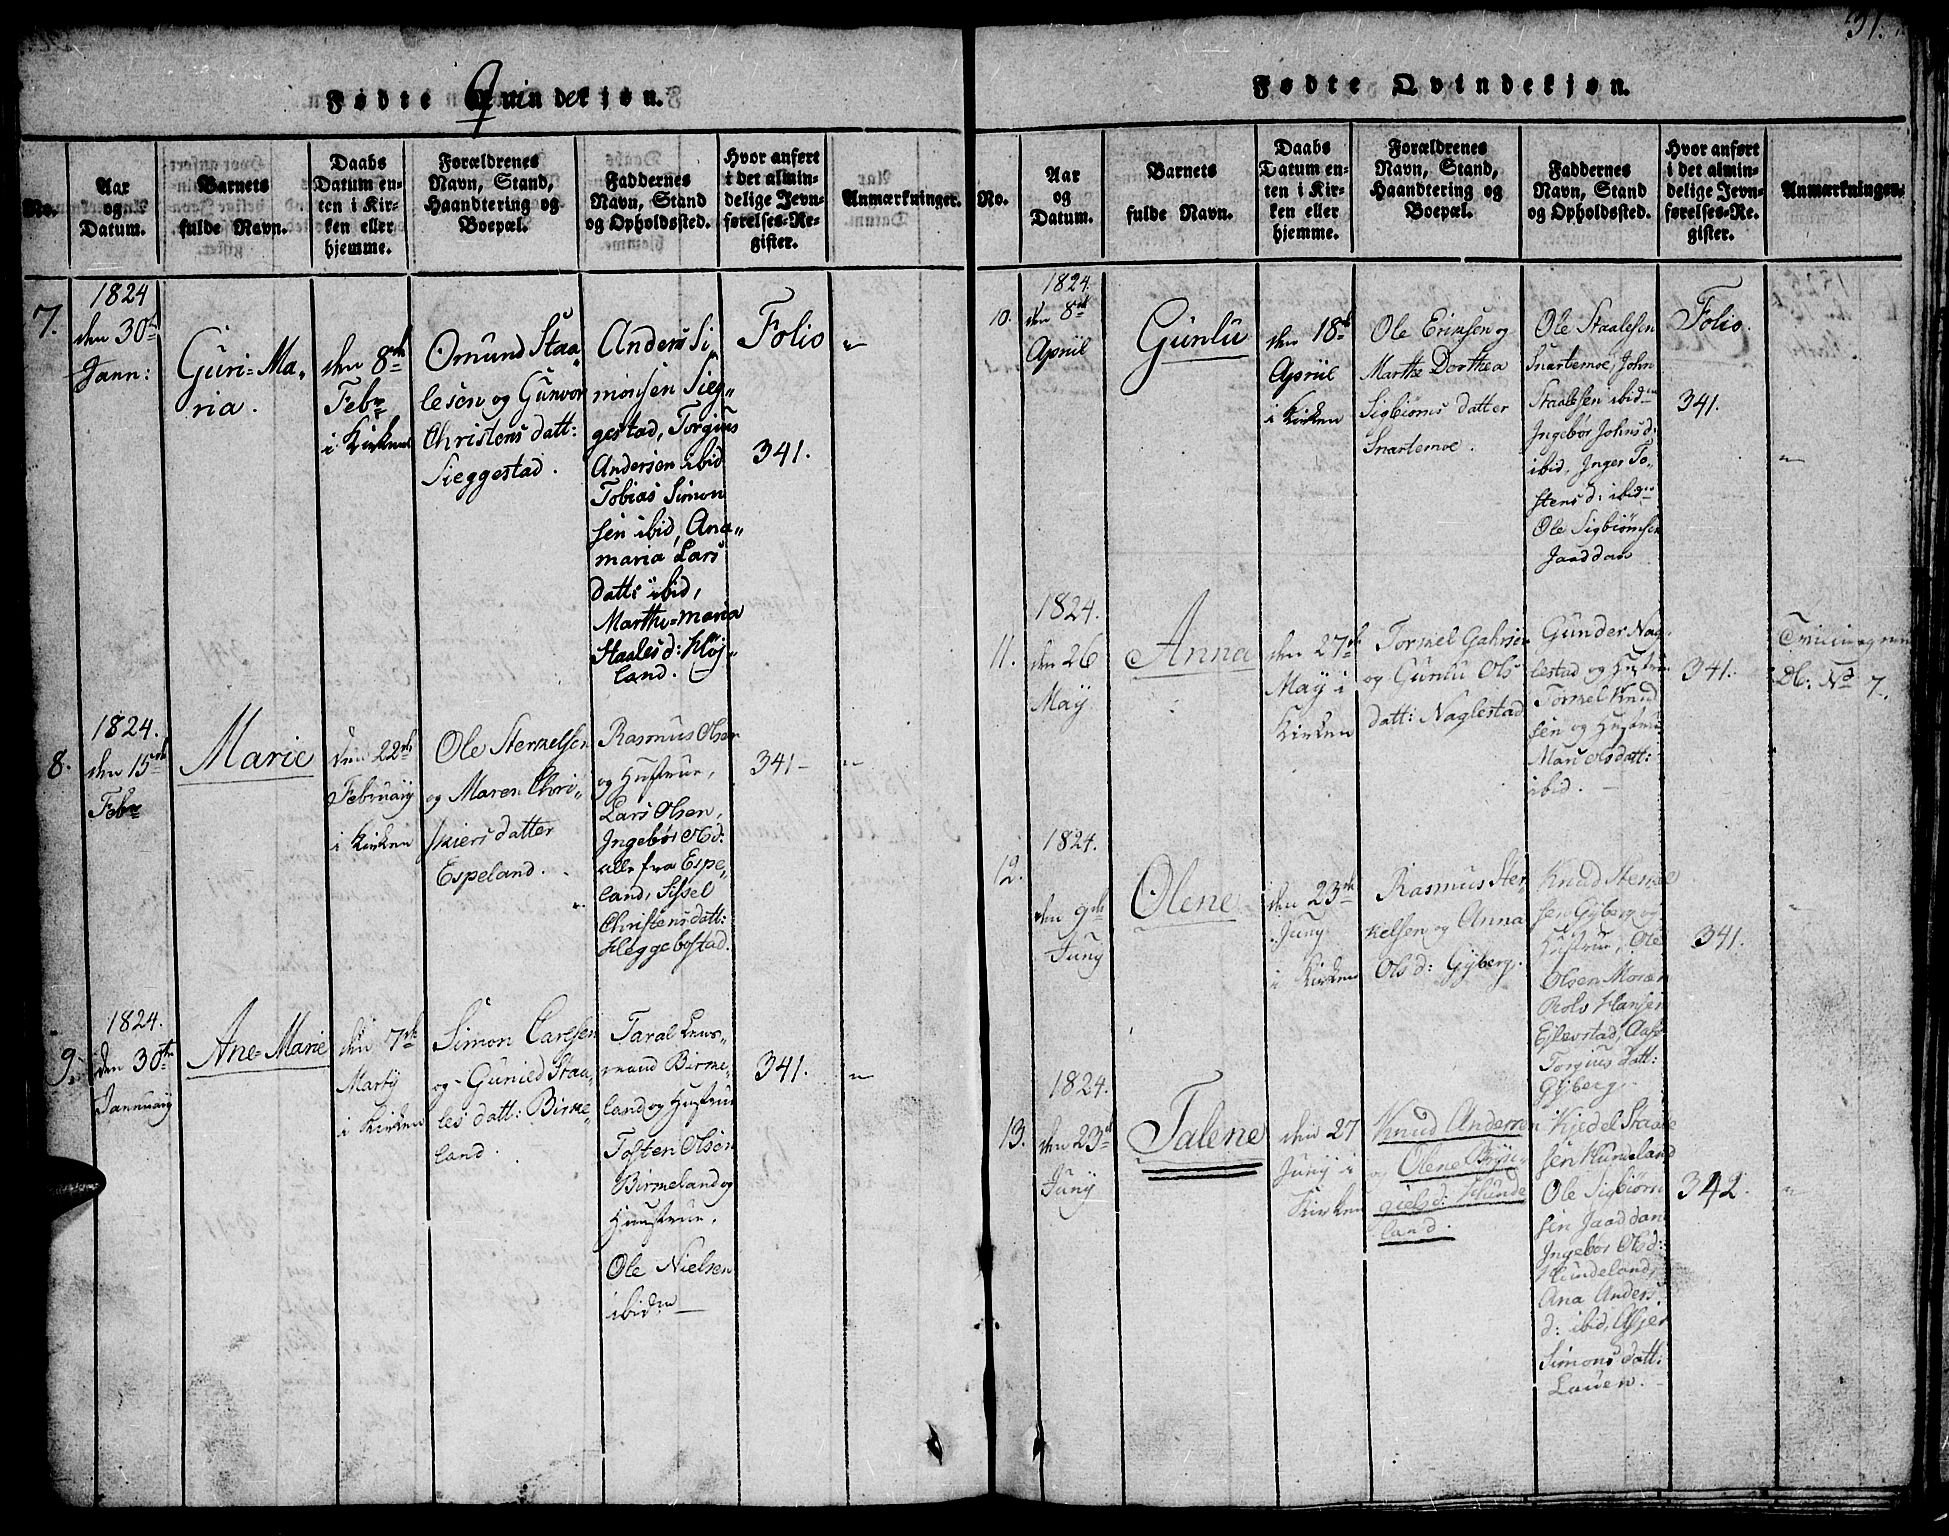 31.
Fødte Qvindekjøn.
No.
Aar
og
Datum.
Barnets
fulde Navn.
Daabs
Datum en-
ten i Kir-
ken eller
hjemme.
Forældrenes
Navn, Stand,
Haandtering og
Boepæl.
Faddernes
Navn, Stand
og Opholdssted.
Hvor anført
i det almin-
delige Jevn-
førelses-Re-
gister.
Anmærkninger.
7.
1824
den 30te
Jann:
Guri-Ma„
ria.
den 8de
Febr
i Kirken
Omund Staa„
lesen og Gunvor
Christens datt:
Sieggestad.
Anders Si„
monsen Sieg„
gestad, Torgius
Andersen ibid
Tobias Simon
sen ibid, Ana„
maria Lars
datt: ibid,
Marthe=maria
Staalesd: Høj„
land.
Folio
341.
„
8.
1824.
den 15de
Febr
Marie
den 22de
February
i Kirken
Ole Sterkelsen
og Maren Chri„
skiers datter
Espeland.
Rasmus Olsen
og Hustrue,
Lars Olsen,
Ingebor Olsd:
alle fra Espe„
land, Sissel
Christens datt:
Heggebostad.
341-
„
9.
1824.
den 30te
Januarij
Ane=Marie
den 7de
Martij
i Kirken
Simon Larsen
og Gunild Staa„
les datt: Birke
land.
Taral Lens„
mand Birme„
land og Hustrue
Tosten Olsen
Birmeland og
Huustrue,
Ole Nielsen
ibidm
341.
„
Fødte Qvindekjøn.
No.
Aar
og
Datum.
Barnets
fulde Navn.
Daabs
Datum en-
ten i Kir-
ken eller
hjemme.
Forældrenes
Navn, Stand,
Haandtering og
Boepæl.
Faddernes
Navn, Stand
og Opholdssted.
Hvor anført
i det almin-
delige Jevn-
førelses-Re-
gister.
Anmærkninger.
10.
1824.
den 8de
April
Gunlu
den 18de
April
i Kirken
Ole Eriksen og
Marthe Dorthea
Sigbiørns datter
Snartemoe.
Ole Staalesen
Snartemoe, John
Staalesen ibidm
Ingebor Johnsd:
ibid, Inger To„
stensd: ibidm
Ole Sigbiørnsen
Jaaddan
Folio.
341.
„
11.
1824.
den 26
Maÿ
Anna
den 27de
Maÿ i
Kirken
Tormel Gahrsen
og Gunlu Ols
datt: Naglestad
Gunder Nag„
lestad og Hustrue
Tormel Knud
sen og Hustrue
Mari Olsdatt:
ibid.
341.
No 7.
12.
1824.
den 9de
Juny
Olene
den 23de
Juny
i Kirken
Rasmus Ster„
kelsen og Anna
Olsd: Gÿberg.
Knud Sterkel
sen Gÿberg og
Hustrue, Ole
Olsen
Hansen
Eilevstad,
Torgius datt:
Gÿberg.
341.
„
13.
1824.
den 23de
Juny
Talene
den 27
Juny i
Kirken
Knud Andersen
og Olene
Hunde
land.
Kjedel Staale
sen Hundeland
Ole Sigbiørn
sen Jaaddan
Ingebor Olsd:
Hundeland,
Ana Anders
d: ibid, Asjer
Simons datt:
Lauen.
342.
„